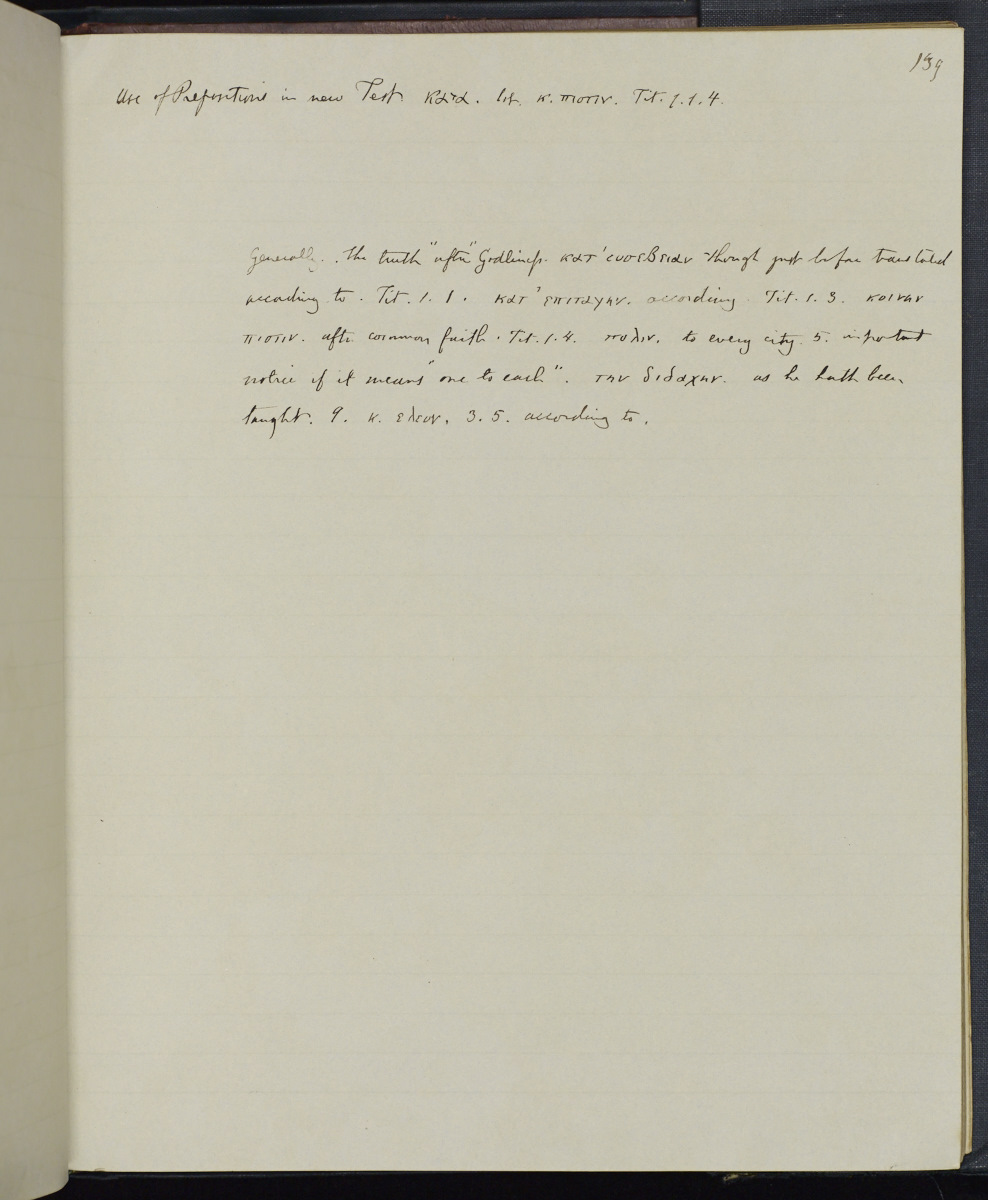 139
Use of Prepositions in new Test. κατα. 1st. κ. πιστιν. Tit. 1.1.4.
Generally. . The truth "after" Godliness. κατ' ευσεβειαν though just before translated
according to. Tit. 1. 1. κατ' επιταγην. according. Tit. 1. 3. κοινην
πιστιν. after common faith. Tit. 1.4. πολιν. to every city. 5. important
notice if it means "one to each". την διδαχην. as he hath been
taught. 9. κ. ελεον. 3. 5. according to.